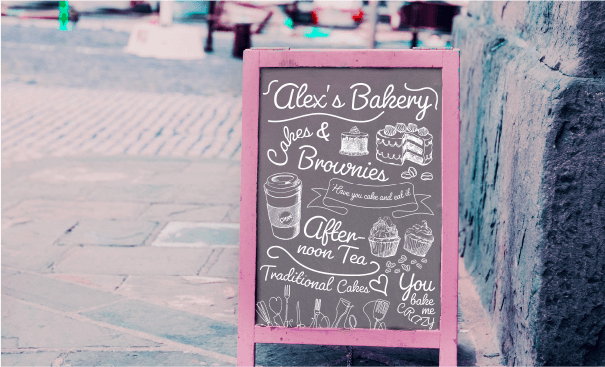 Alex's Bakery
Cakes &
Brownies
Have you cake and eat it
After-
noon Tea
Traditional Cakes
You
bake
me
CRAZY